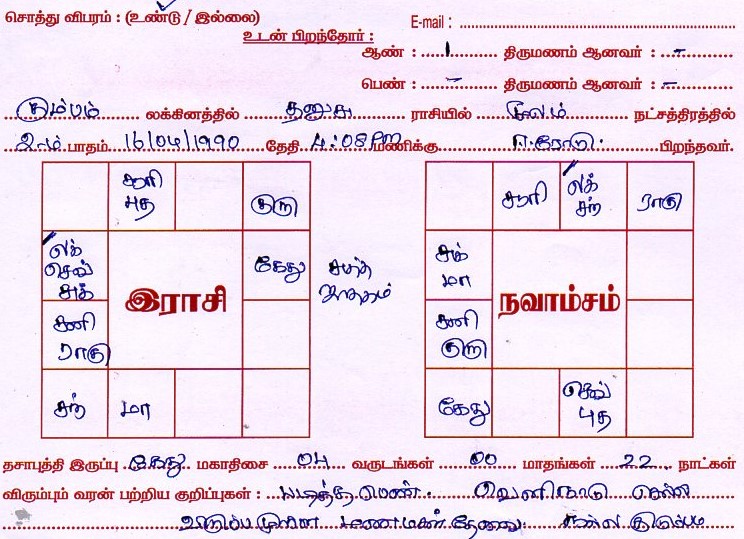 சொத்து விபரம் : (உண்டு / இல்லை)
E-mail :
உடன் பிறந்தோர் :
ஆண் : 1 திருமணம் ஆனவர் : -
பெண் : - திருமணம் ஆனவர் : -
கும்பம் லக்கினத்தில் தனுசு ராசியில் மூலம் நட்சத்திரத்தில்
2-ம் பாதம் 16/04/1990 தேதி 4:08 PM மணிக்கு ஈரோடு பிறந்தவர்.
சூரி
புத
குரு
லக்
செவ்
சுக்
இராசி
கேது
சுத்த
ஜாதகம்
சனி
ராகு
சந்
மா
சூரி
லக்
சந்
ராகு
சுக்
மா
நவாம்சம்
சனி
குரு
கேது
செவ்
புத
தசாபுத்தி இருப்பு கேது மகாதிசை 04 வருடங்கள் 00 மாதங்கள் 22 நாட்கள்
விரும்பும் வரன் பற்றிய குறிப்புகள் : படித்த பெண். வெளிநாடு செல்ல
விருப்பமுள்ள மணமகள் தேவை. நல்ல குடும்பம்